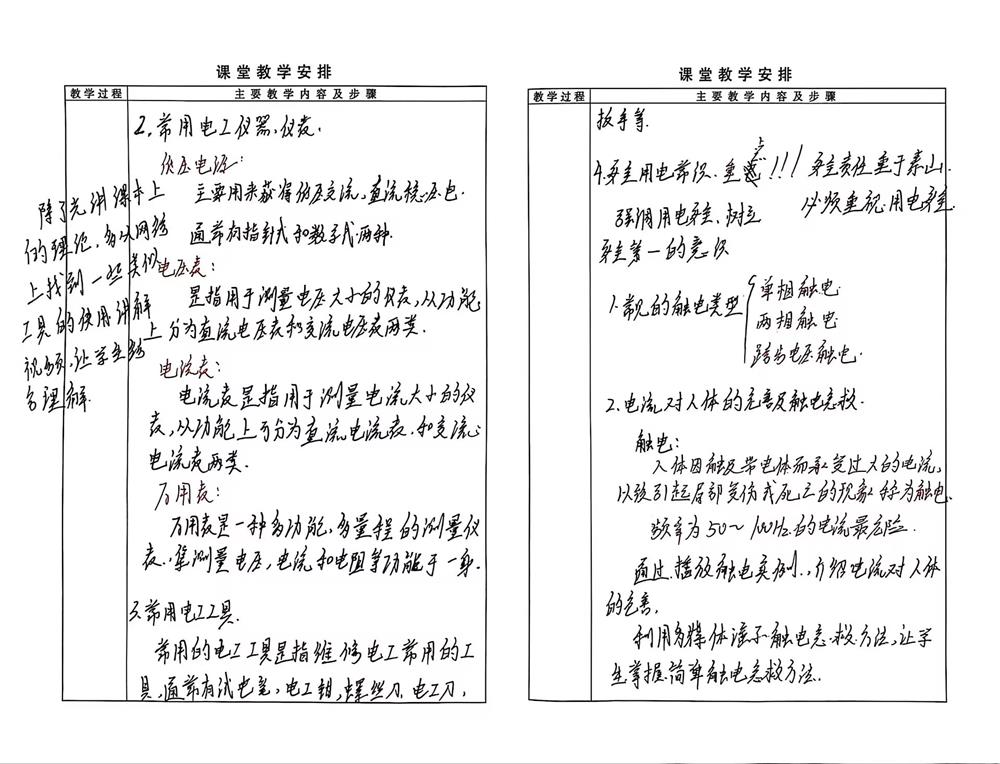 课堂教学安排
教学过程 主要教学内容及步骤
2.常用电工仪器、仪表.
低压电源:
主要用来获得低压交流,直流稳压电.
通常有指针式和数字式两种.
电压表:
是指用于测量电压大小的仪表,从功能
上分为直流电压表和交流电压表两类.
电流表:
电流表是指用于测量电流大小的仪
表,从功能上可分为直流电流表.和交流
电流表两类.
万用表:
万用表是一种多功能,多量程的测量仪
表.集测量电压,电流和电阻等功能于一身.
3.常用电工工具.
常用的电工工具是指维修电工常用的工
具,通常有试电笔,电工钳,螺丝刀.电工刀,
除了光讲课本上
的理论,多从网络
上找到一些类似
工具的使用讲解
视频,让学生结
合理解.
课堂教学安排
教学过程 主要教学内容及步骤
扳手等.
4.安全用电常识.重点!!! 安全责任重于泰山.
强调用电安全,树立 必须重视用电安全.
安全第一的意识
1.常见的触电类型
单相触电
两相触电
跨步电压触电.
2.电流对人体的危害及触电急救.
触电:
人体因触及带电体而承受过大的电流,
以致引起局部受伤或死亡的现象称为触电.
频率为50~100Hz的电流最危险.
通过播放触电实例.,介绍电流对人体
的危害.
利用多媒体演示触电急救方法,让学
生掌握简单触电急救方法.